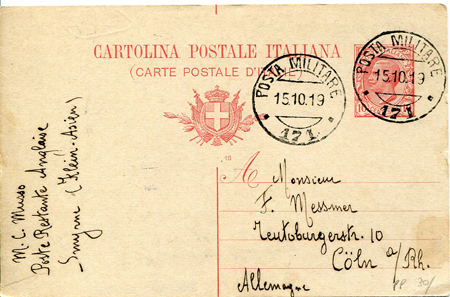 CARTOLINA POSTALE ITALIANA
(CARTE POSTALE D'ITALIE)
POSTA MILITARE
15.10.19
171
POSTA MILITARE
15.10.19
171
M. C. Musso
Poste Restante Anglaise
Smyrne (Klein-Asien)
A Monsieur
F. Messmer
Teutoburgerstr. 10
Cöln a/Rh.
Allemagne